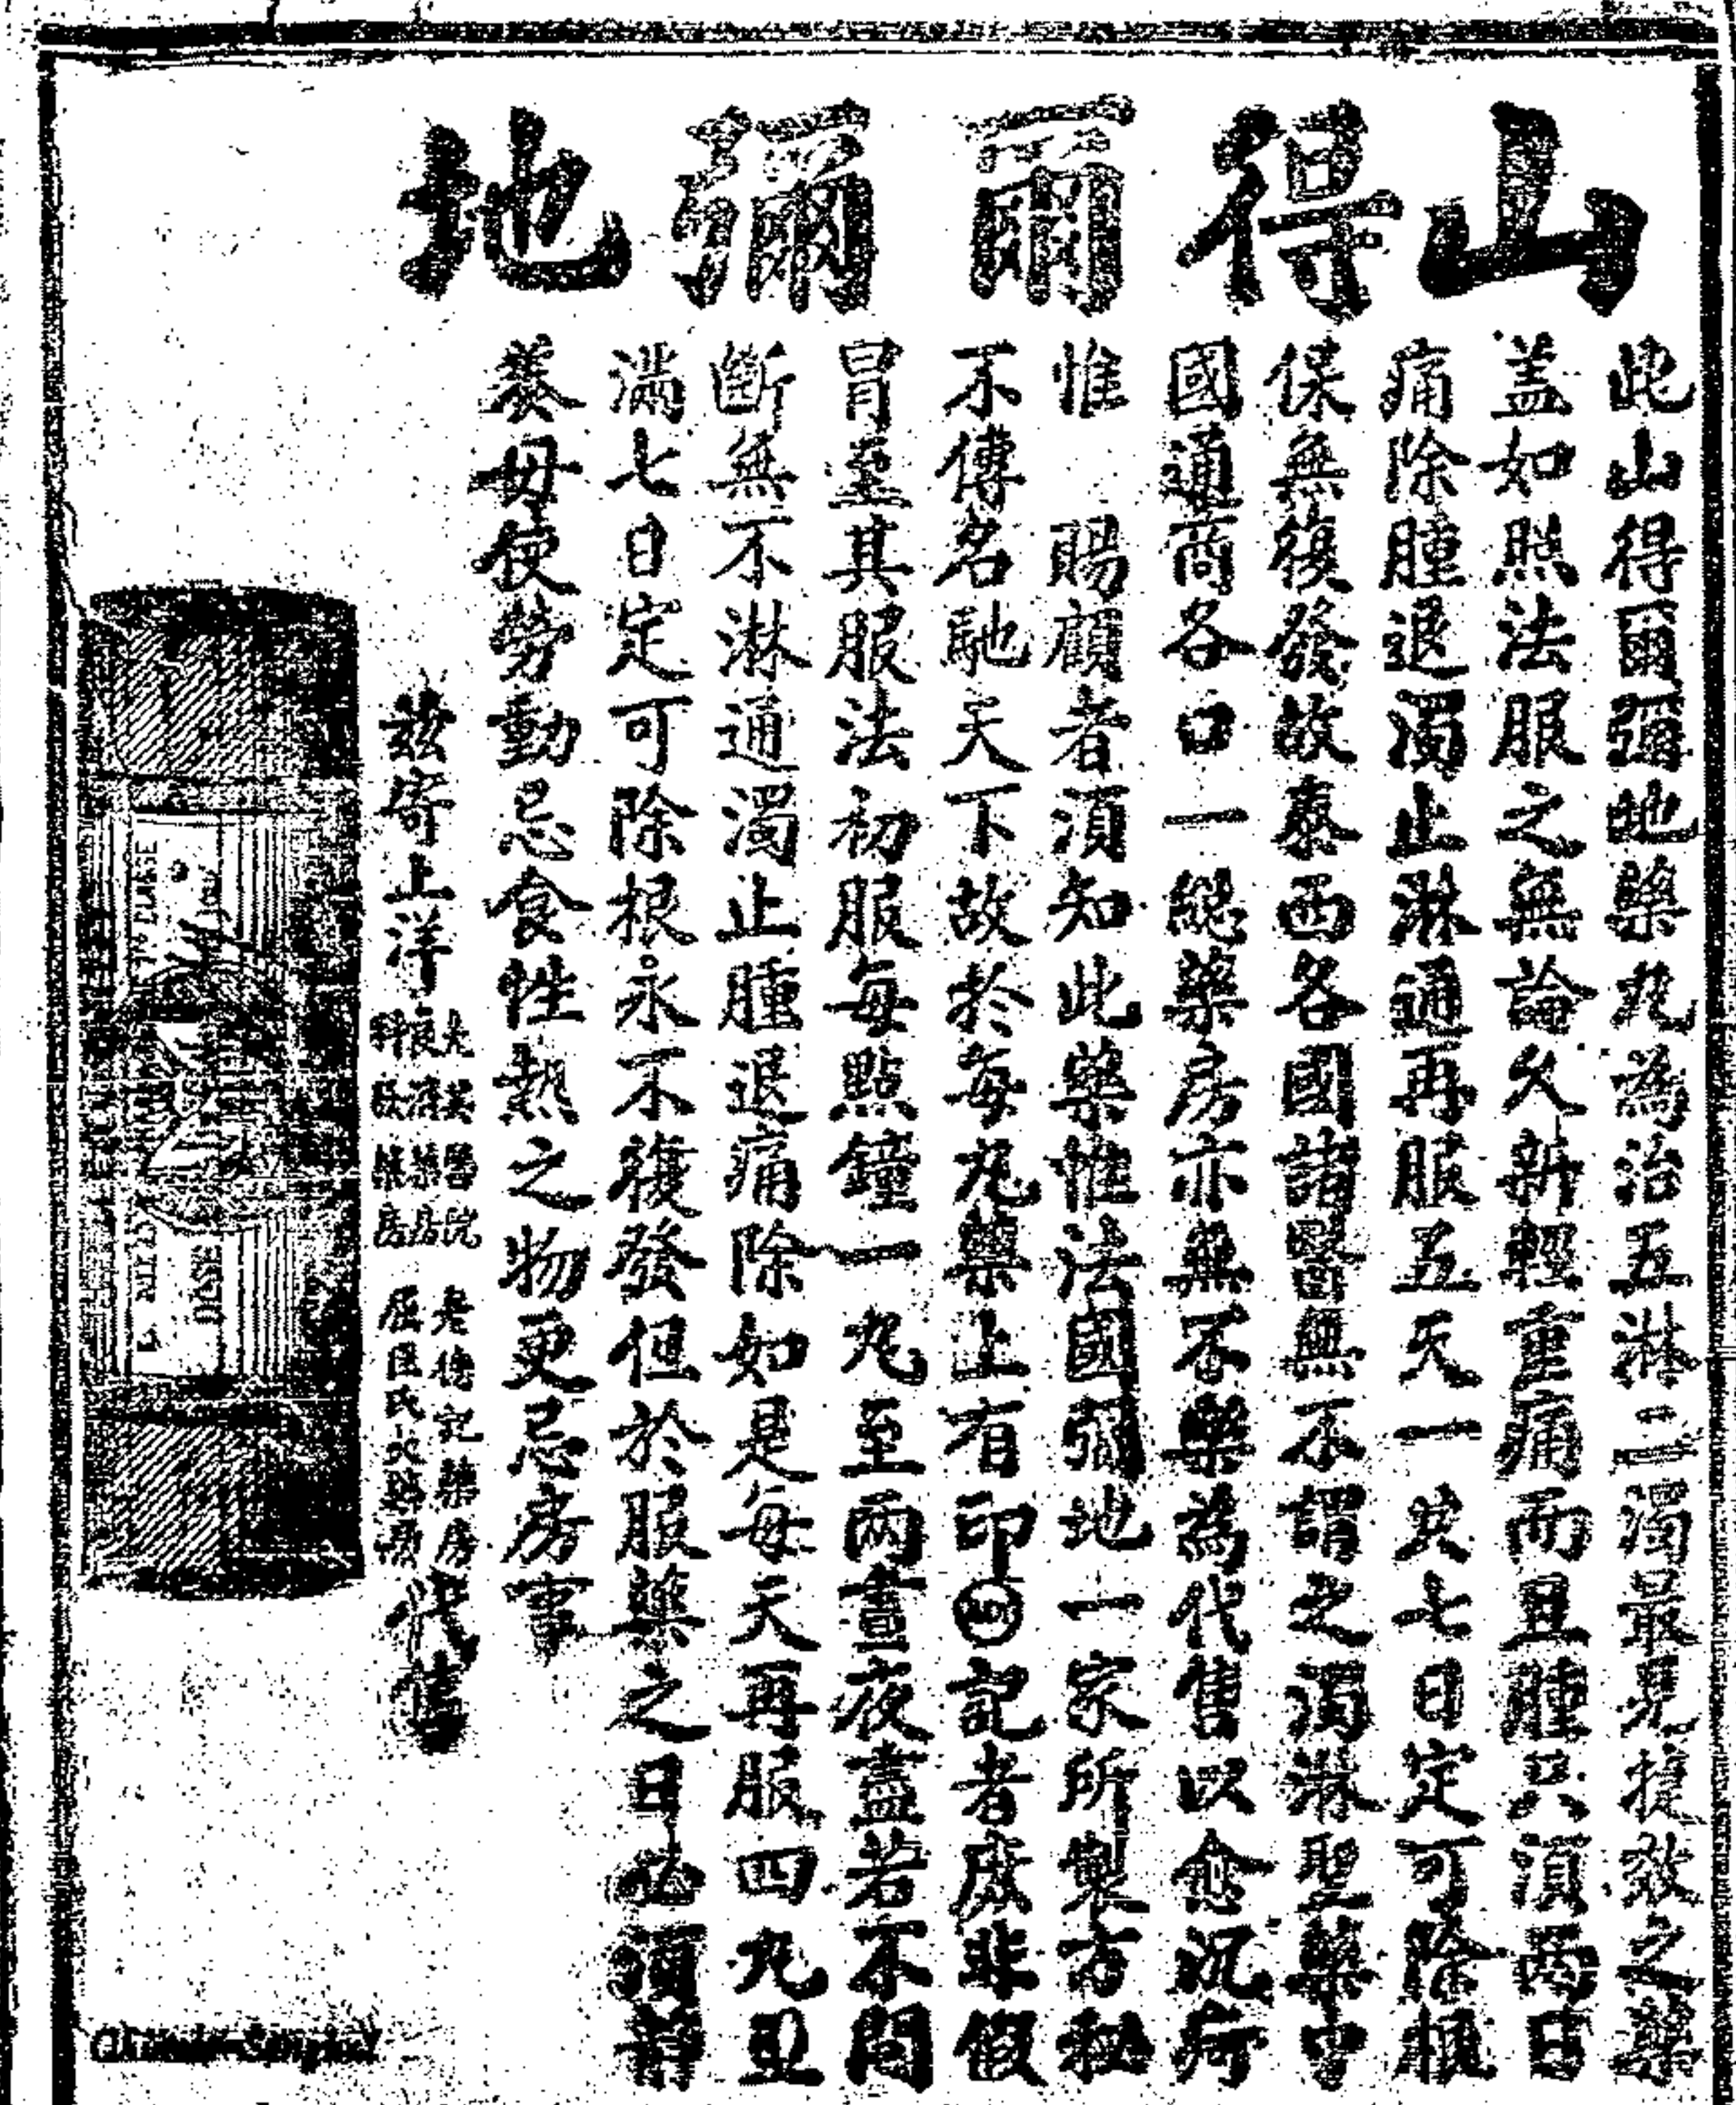 山得爾彌地
此山得爾彌地藥丸為治五淋二濁最見捷效之藥
盖如照法服之無論久新輕重痛而且腫只須兩日
痛除腫退濁止淋通再服五天一共七日定可除根
保無復發故泰西各國諸醫無不謂之濁淋聖藥中
國通商各口一總藥房亦無不樂為代售以愈沉疴
惟　賜顧者須知此藥惟法國彌地一家所製方秘
不傳名馳天下故於每丸藥上有印記者庶非假
冒至其服法初服每點鐘一丸至兩晝夜盡若不間
斷無不淋通濁止腫退痛除如是每天再服四丸且
滿七日定可除根永不復發但於服藥之日必須靜
養毋使勞動忌食性熱之物更忌房事
茲寄上洋
大英醫院
藥房
藥房
老德記藥房
屈臣氏大藥房
代售